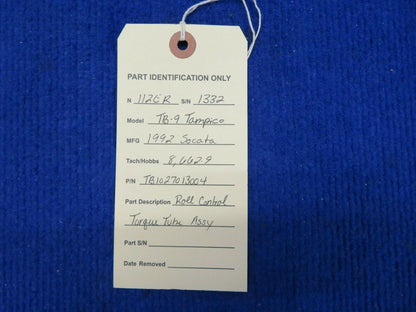 PART IDENTIFICATION ONLY
N 112ER S/N 1332
Model TB-9 Tampico
MFG 1992 Socata
Tach/Hobbs 8,662.9
P/N TB1027013004
Part Description Roll Control
Torque Tube Assy
Part S/N
Date Removed